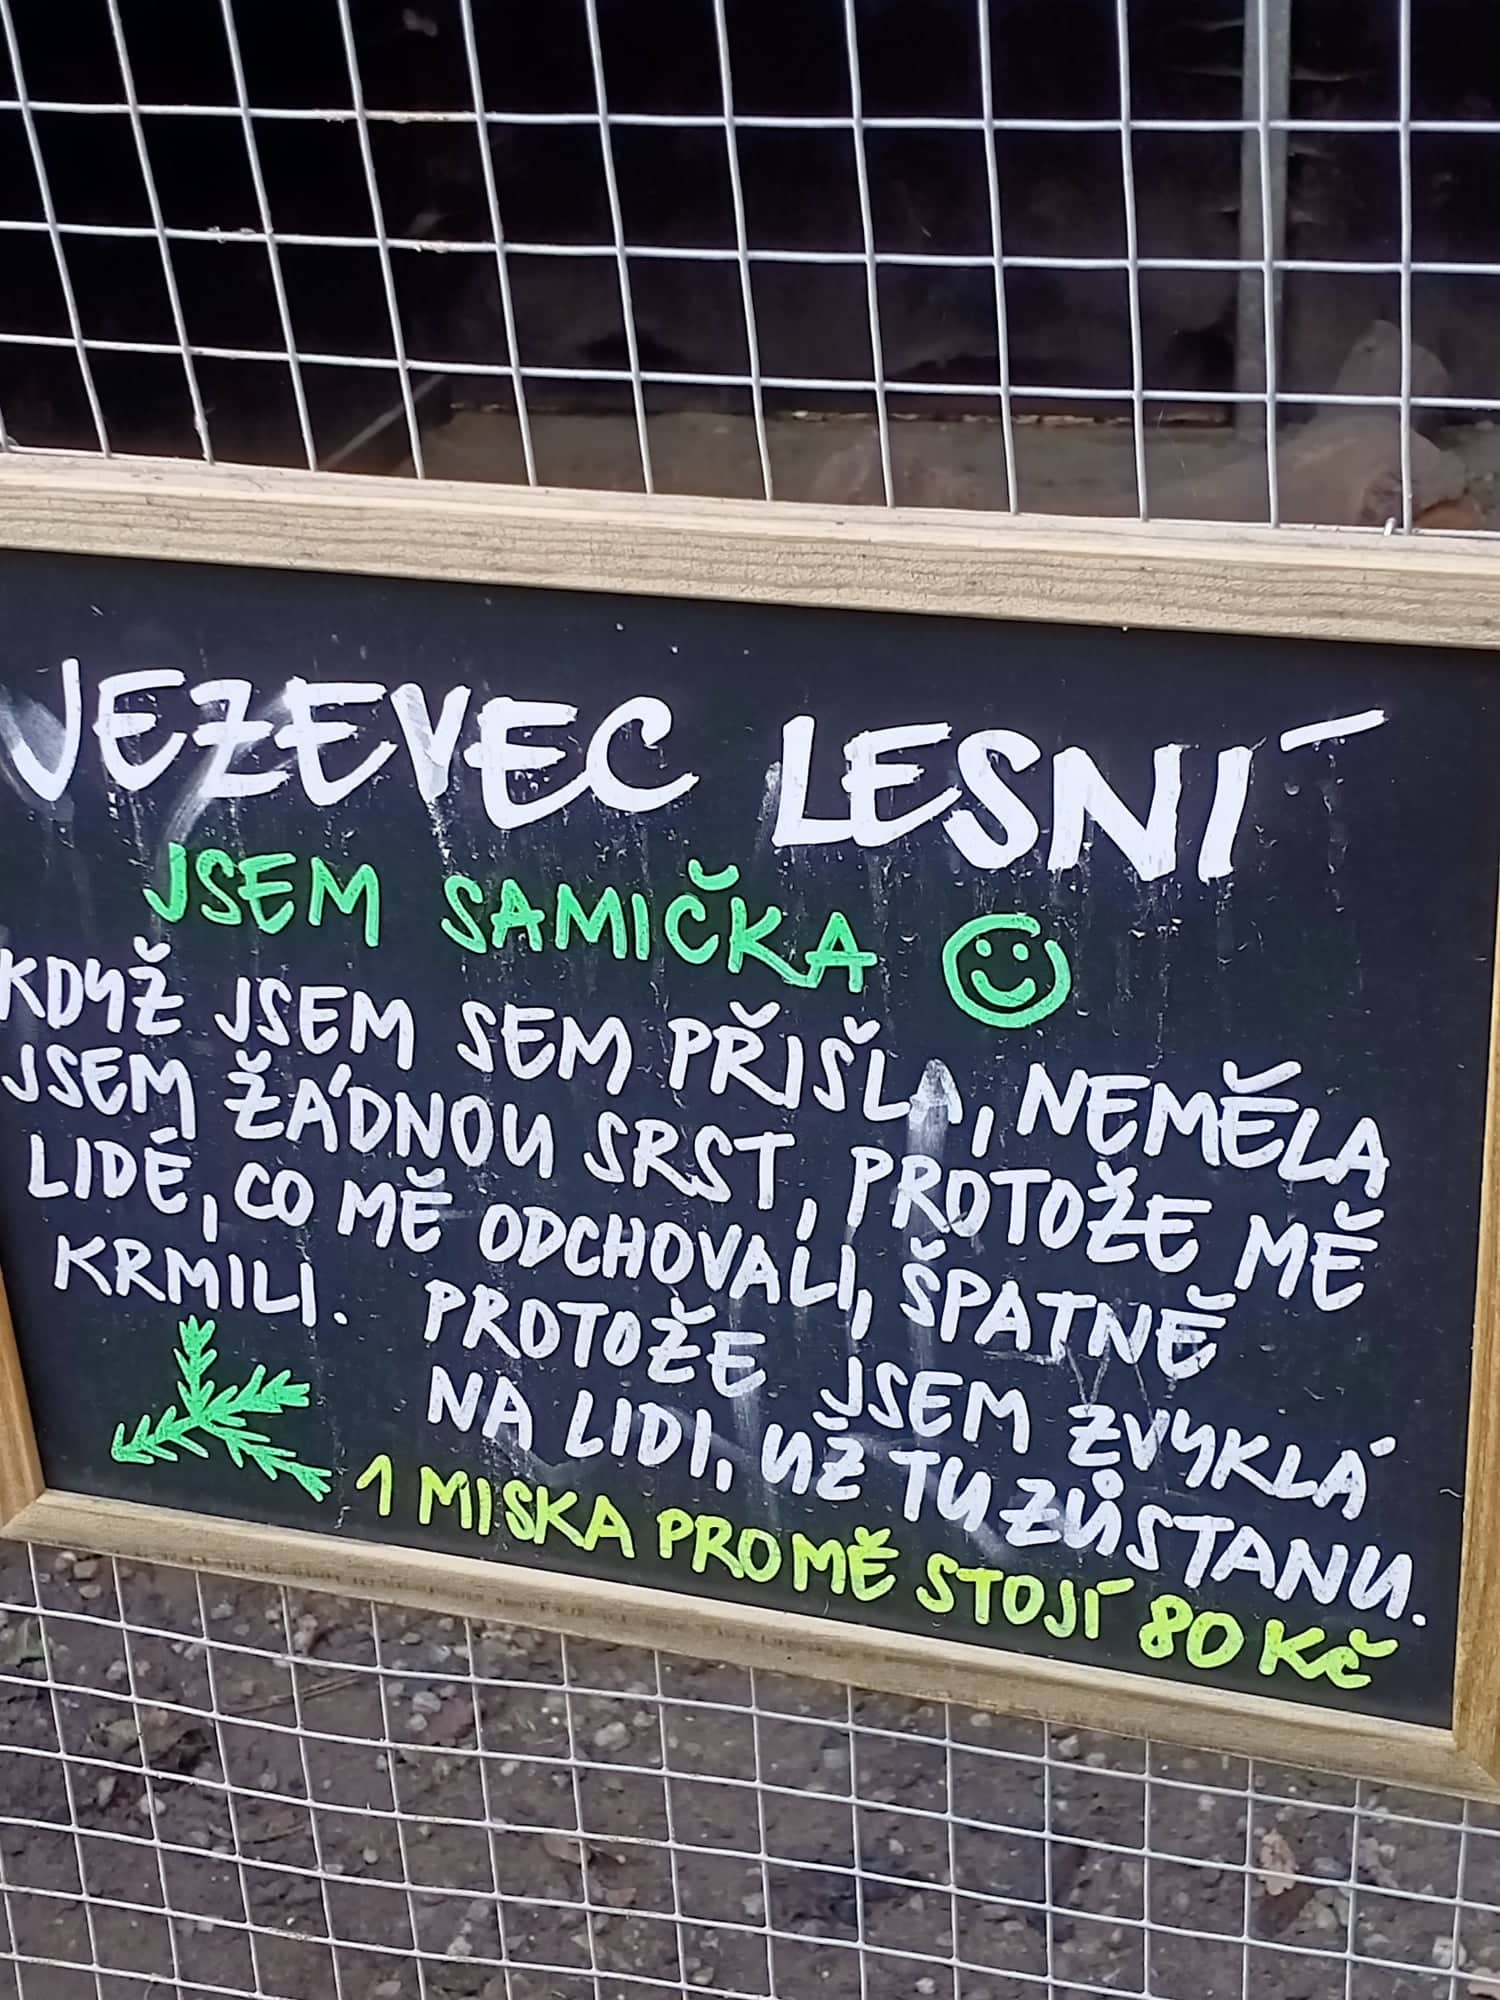 JEZEVEC LESNÍ
JSEM SAMIČKA
KDYŽ JSEM SEM PŘIŠLA, NEMĚLA
JSEM ŽÁDNOU SRST, PROTOŽE MĚ
LIDÉ, CO MĚ ODCHOVALI, ŠPATNĚ
KRMILI. PROTOŽE JSEM ZVYKLÁ
NA LIDI, UŽ TU ZŮSTANU.
1 MISKA PRO MĚ STOJÍ 80 Kč